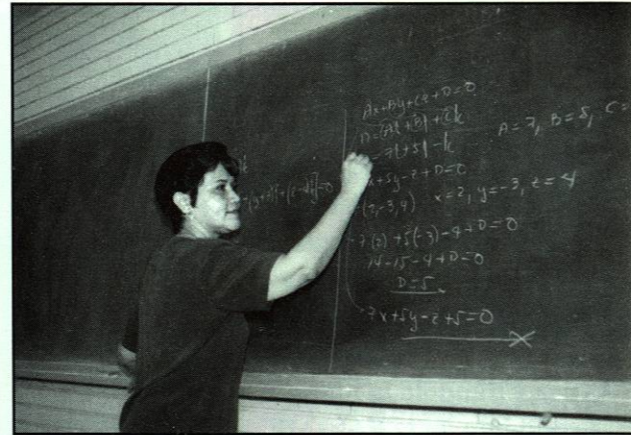 Ax+By+Cz+D=0
A=7, B=5, C=
7i+5j-k
x+5y-z+D=0
(2,-3,4) x=2, y=-3, z=4
7(2)+5(-3)-4+D=0
14-15-4+D=0
D=5
7x+5y-z+5=0